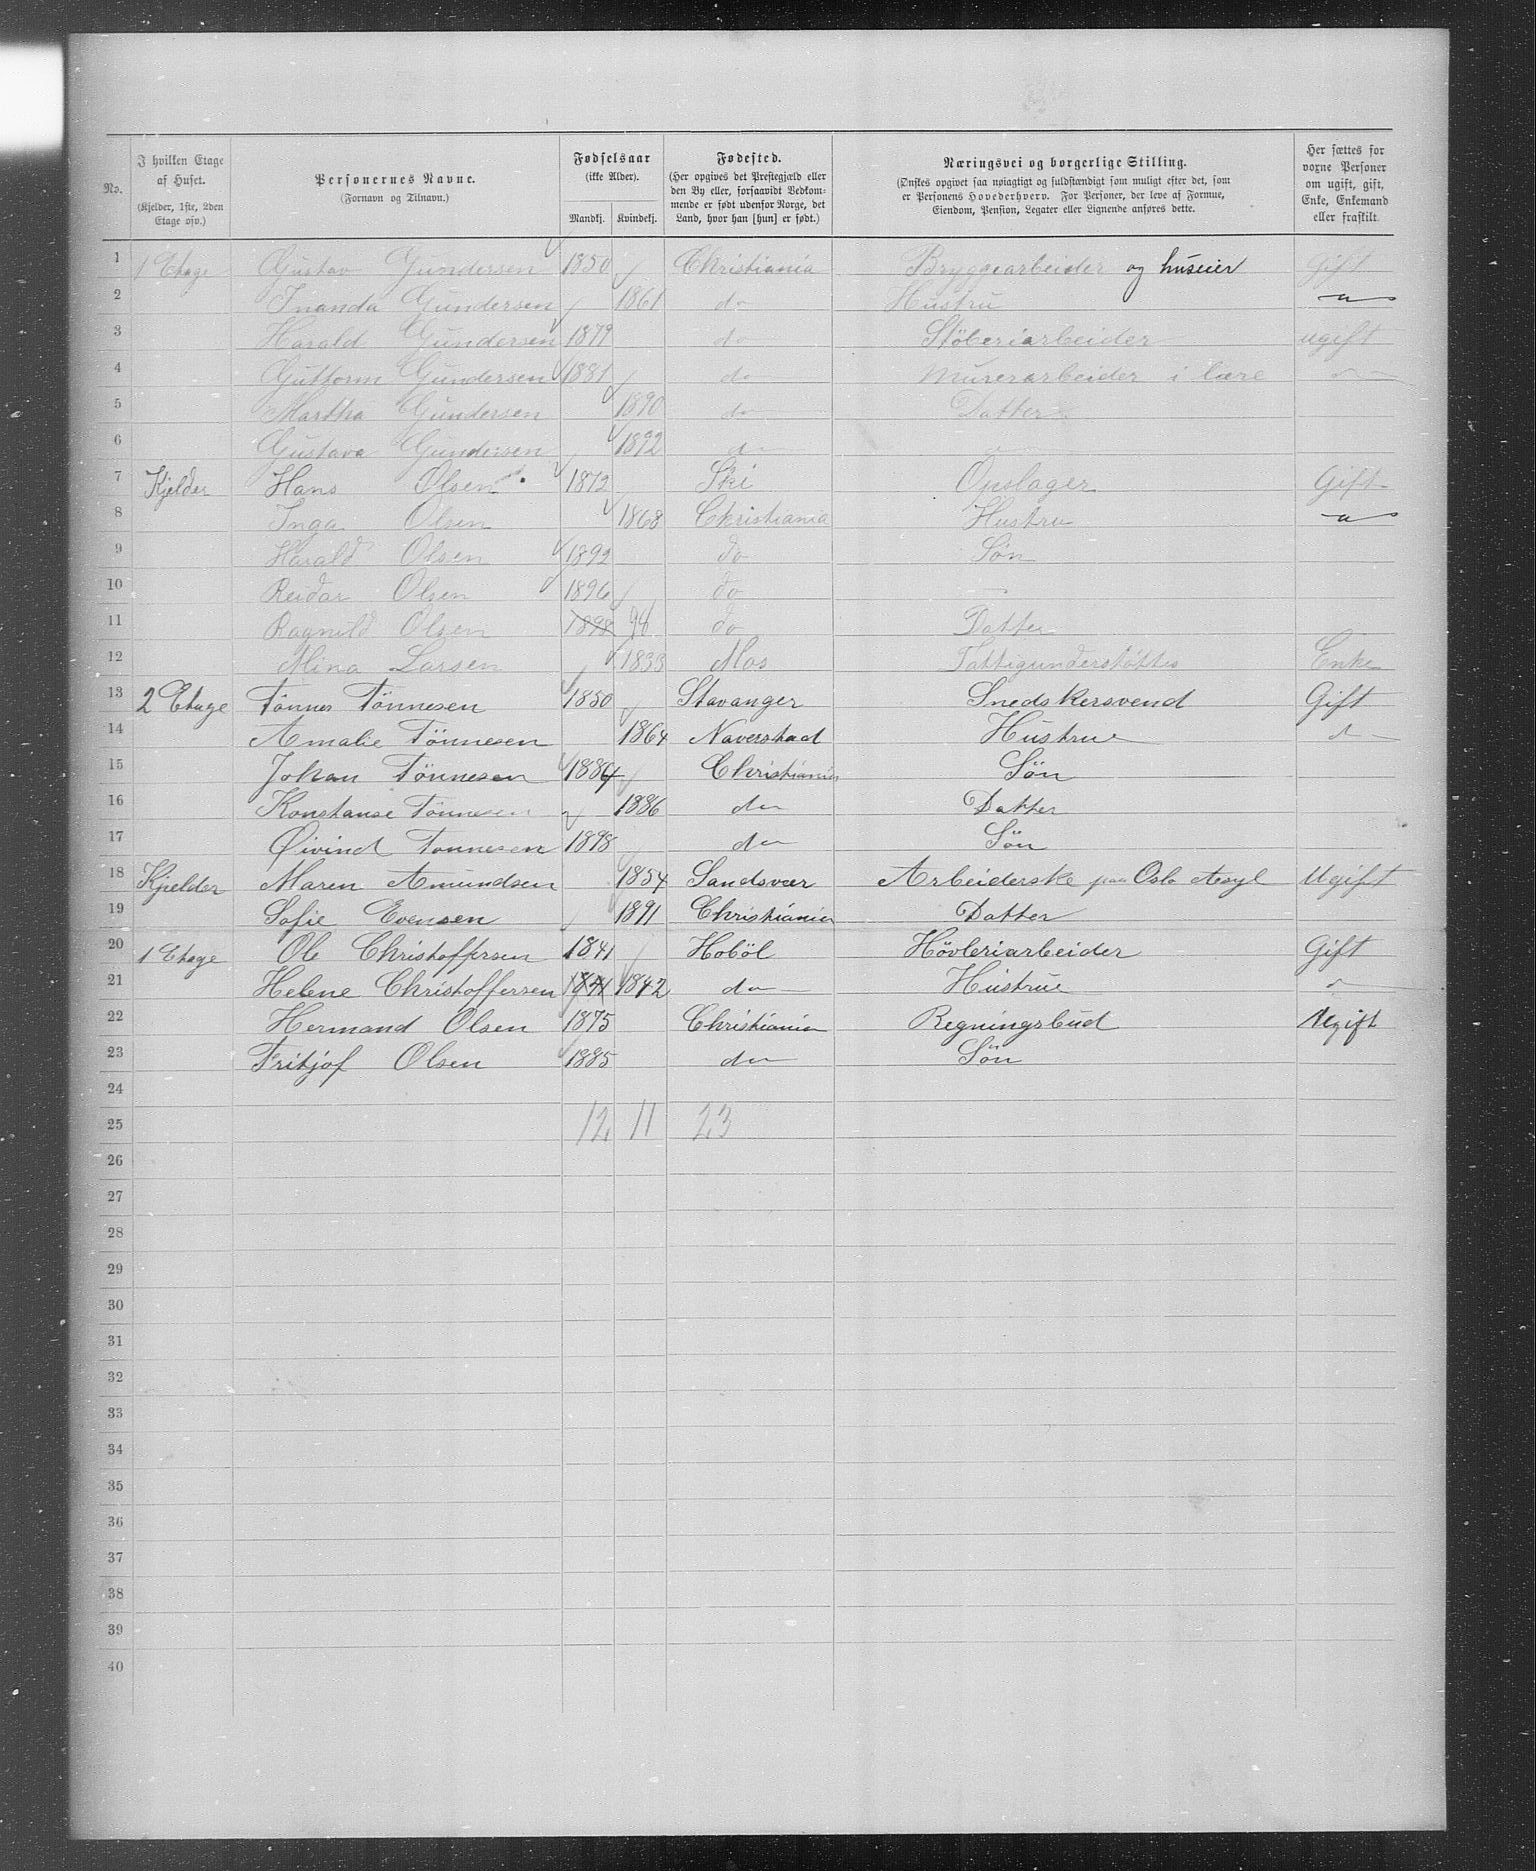 No. | I hvilken Etage af Huset. (Kjelder, 1ste, 2den Etage osv.) | Personernes Navne. (Fornavn og Tilnavn.) | Fødselsaar (ikke Alder). Mandkj. | Kvindekj. | Fødested. (Her opgives det Prestegjæld eller den By eller, forsaavidt Vedkommende er født udenfor Norge, det Land, hvor han [hun] er født.) | Næringsvei og borgerlige Stilling. (Ønskes opgivet saa nøiagtigt og fuldstændigt som muligt efter det, som er Personens Hovederhverv. For Personer, der leve af Formue, Eiendom, Pension, Legater eller Lignende anføres dette. | Her sættes for voxne Personer om ugift, gift, Enke, Enkemand eller fraskilt.
1 1 Etage Gustav Gundersen 1850 Christiania Bryggearbeider og huseier Gift
2 Inanda Gundersen 1861 do Hustru
3 Harald Gundersen 1879 do Støberiarbeider ugift
4 Guttorm Gundersen 1881 do Murerarbeider i lære
5 Martha Gundersen 1890 do Datter
6 Gustava Gundersen 1892 do
7 Kjelder Hans Olsen 1872 Ski Opslager Gift
8 Inga Olsen 1868 Christiania Hustru
9 Harald Olsen 1892 do Søn
10 Reidar Olsen 1896 do
11 Ragnild Olsen 1898 98 do Datter
12 Mina Larsen 1833 Mos Fattigunderstøttes Enke
13 2 Etage Tønnes Tönnesen 1850 Stavanger Snedskersvend Gift
14 Amalie Tönnesen 1864 Naverstad Hustrue
15 Johan Tönnesen 1884 Christiania Søn
16 Konstanse Tönnesen 1886 do Datter
17 Øivind Tonnesen 1898 do Søn
18 Kjælder Maren Amundsen 1854 Sandsvær Arbeiderske paa Oslo Asyl Ugift
19 Sofie Evensen 1891 Christiania Datter
20 1 Etage Ole Christoffersen 1841 Hoböl Hövleriarbeider Gift
21 Helene Christoffersen 1841 1842 do Hustrue
22 Hermand Olsen 1875 Christiania Regningsbud Ugift
23 Fritjof Olsen 1885 do Søn
24
25 12 11 23
26
27
28
29
30
31
32
33
34
35
36
37
38
39
40